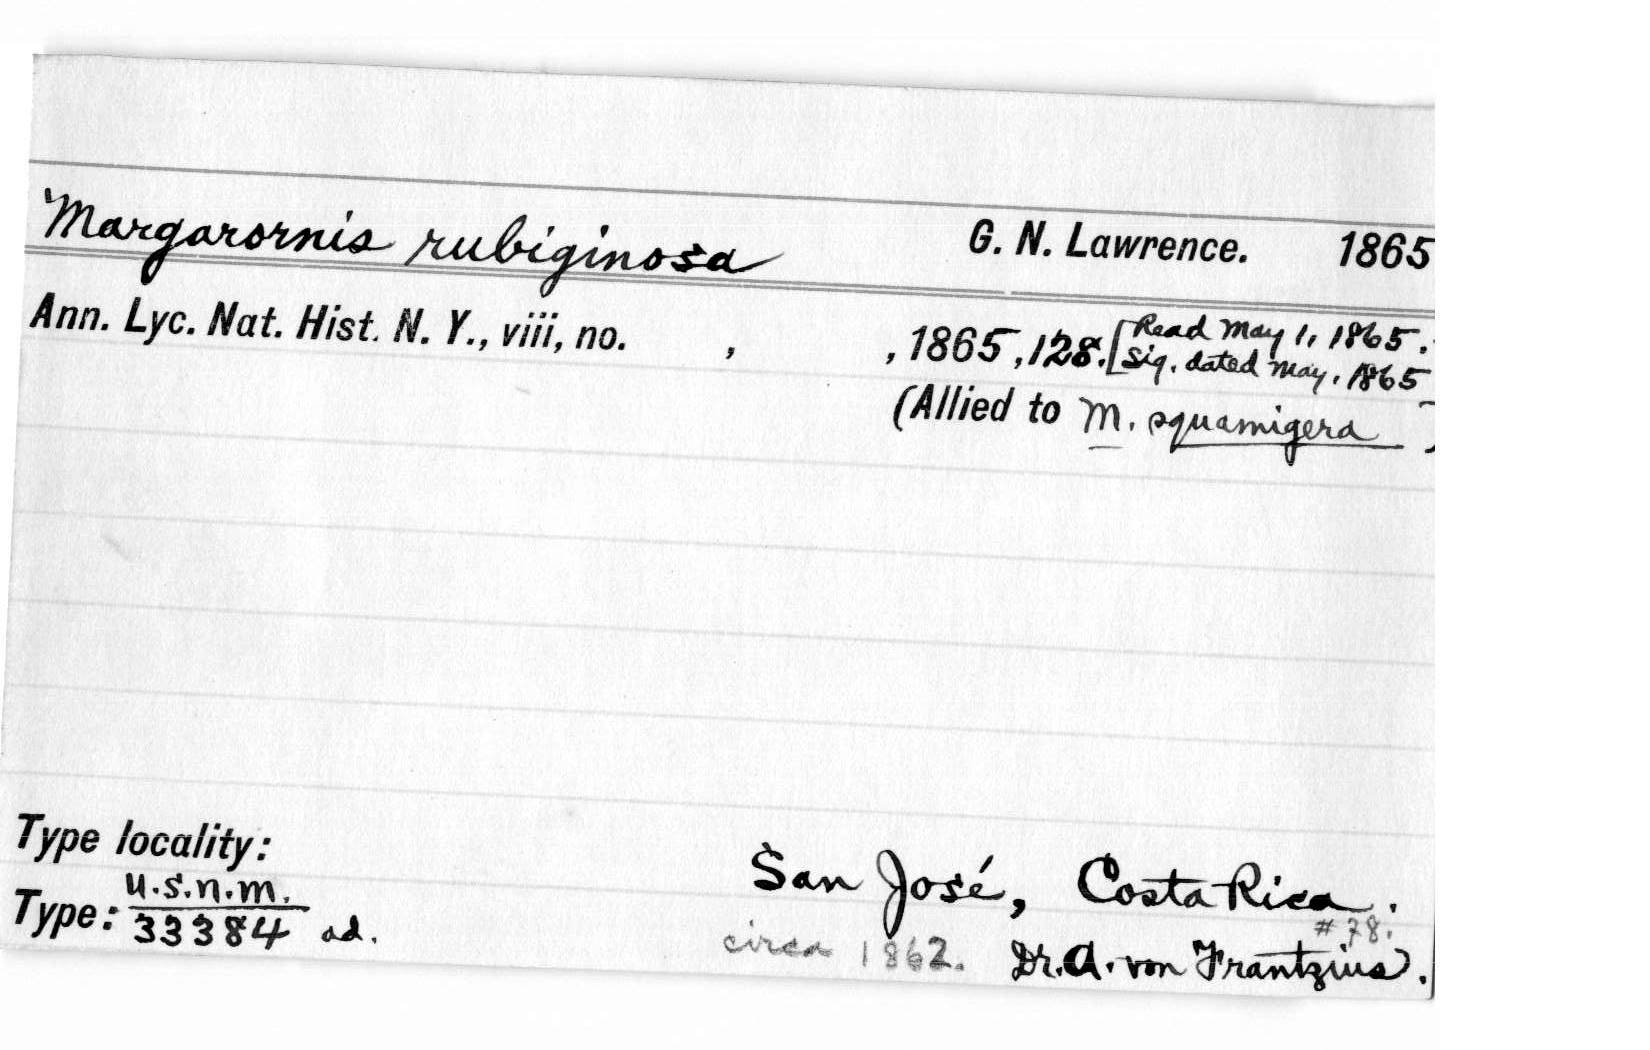 Margarornis rubiginosa G. N. Lawrence. 1865
Ann. Lyc. Nat. Hist. N. Y., viii, no. , , 1865, 128. [Read May 1, 1865.
Sig. dated May, 1865
(Allied to M. squamigera )
Type locality: San José, Costa Rica.
U.S.N.M. #78.
Type: 33384 ad. circa 1862. Dr. A. von Frantzius.